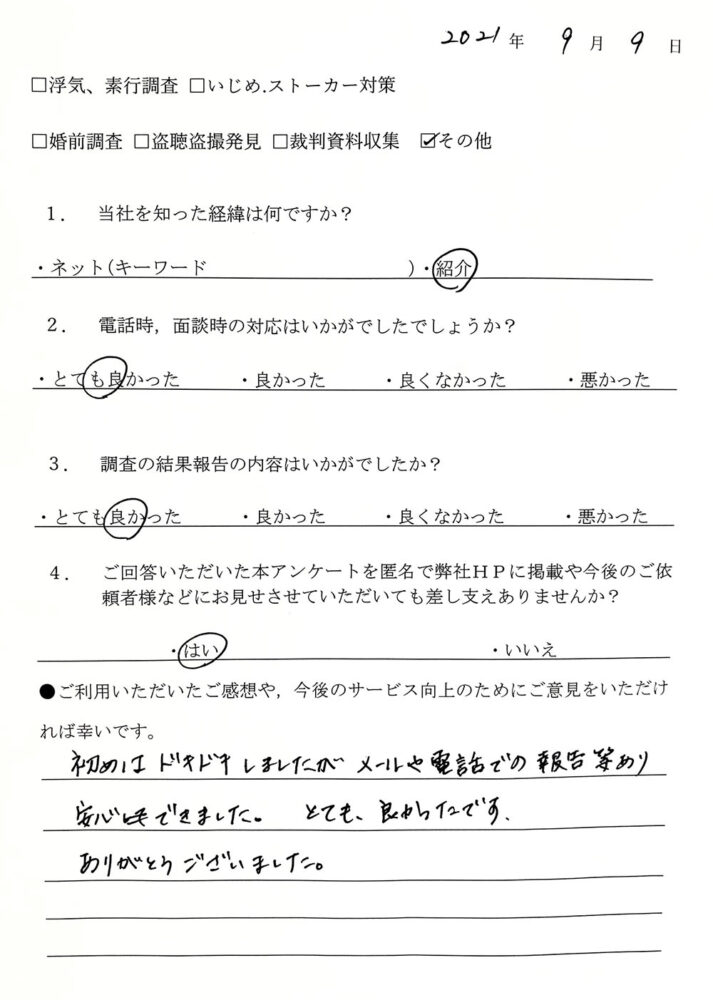 2021年 9月 9日
□浮気、素行調査 □いじめ.ストーカー対策
□婚前調査 □盗聴盗撮発見 □裁判資料収集 ☑その他
1． 当社を知った経緯は何ですか？
・ネット(キーワード )・紹介
2． 電話時，面談時の対応はいかがでしたでしょうか？
・とても良かった ・良かった ・良くなかった ・悪かった
3． 調査の結果報告の内容はいかがでしたか？
・とても良かった ・良かった ・良くなかった ・悪かった
4． ご回答いただいた本アンケートを匿名で弊社ＨＰに掲載や今後のご依
頼者様などにお見せさせていただいても差し支えありませんか？
・はい ・いいえ
●ご利用いただいたご感想や，今後のサービス向上のためにご意見をいただけ
れば幸いです。
初めは ドキドキしましたが メールや電話での 報告等あり
安心できました。 とても、良かったです.
ありがとうございました。